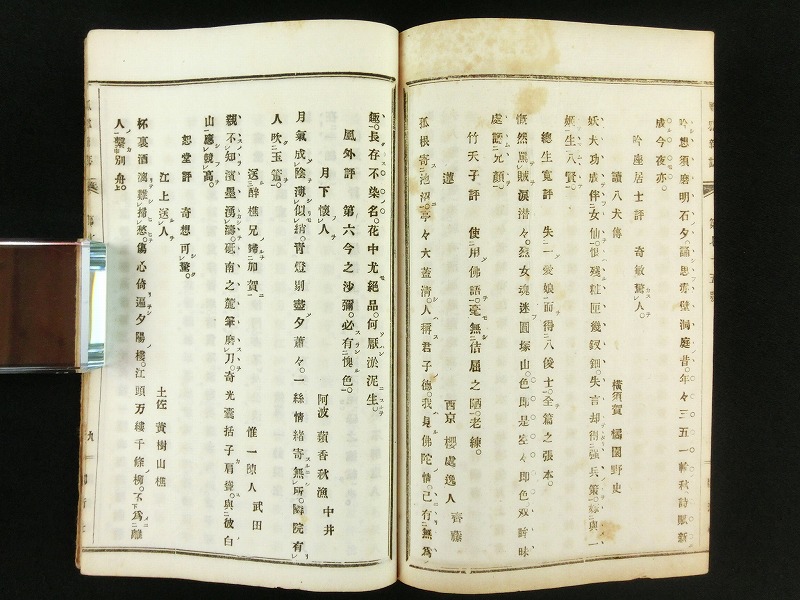 吟想須磨明石夕。謡思赤壁洞庭昔。年々三五一輪秋詩賦新
成今夜亦。
吟座居士評 奇敏驚人。
讀八犬傳
横須賀 橘園野史
妖犬功成伴女仙。恨殘粧匣幾釵鈿。失言却得強兵策。縁與一
姬生八賢。
總生寬評 失一愛娘而得八俊士。全篇之張本。
慨然罵賊涙潸々。烈女魂迷圓塚山。色即是空々即色双眸昧
處認兄顏。
竹天子評 使用佛語。毫無佶屈之陋。老練。
蓮
西京 櫻處逸人 齊藤
孤根寄池沼。亭々大蓋淸。人稱君子德。我見佛陀情。已有無爲
趣。長存不染名。花中尤絕品。何厭淤泥生。
風外評 第六今之沙彌。必有愧色。
月下懷人
阿波 蘋香秋漁 中井
月氣成陰薄似綃。靑燈剔盡夕蕭々。一絲情緒寄無所。隣院有
人吹玉簫。
送醉樵兄歸加賀
惟一陳人 武田
親不知濱墨湧濤。砥南之龍筆磨刀。奇光嚢括子肩聳。與彼白
山應競高。
恕堂評 奇想可驚。
江上送人
土佐 黃樹山樵
杯裏酒濃難掃愁。傷心倚遍夕陽樓。江頭万縷千條柳。不爲離
人繫別舟。